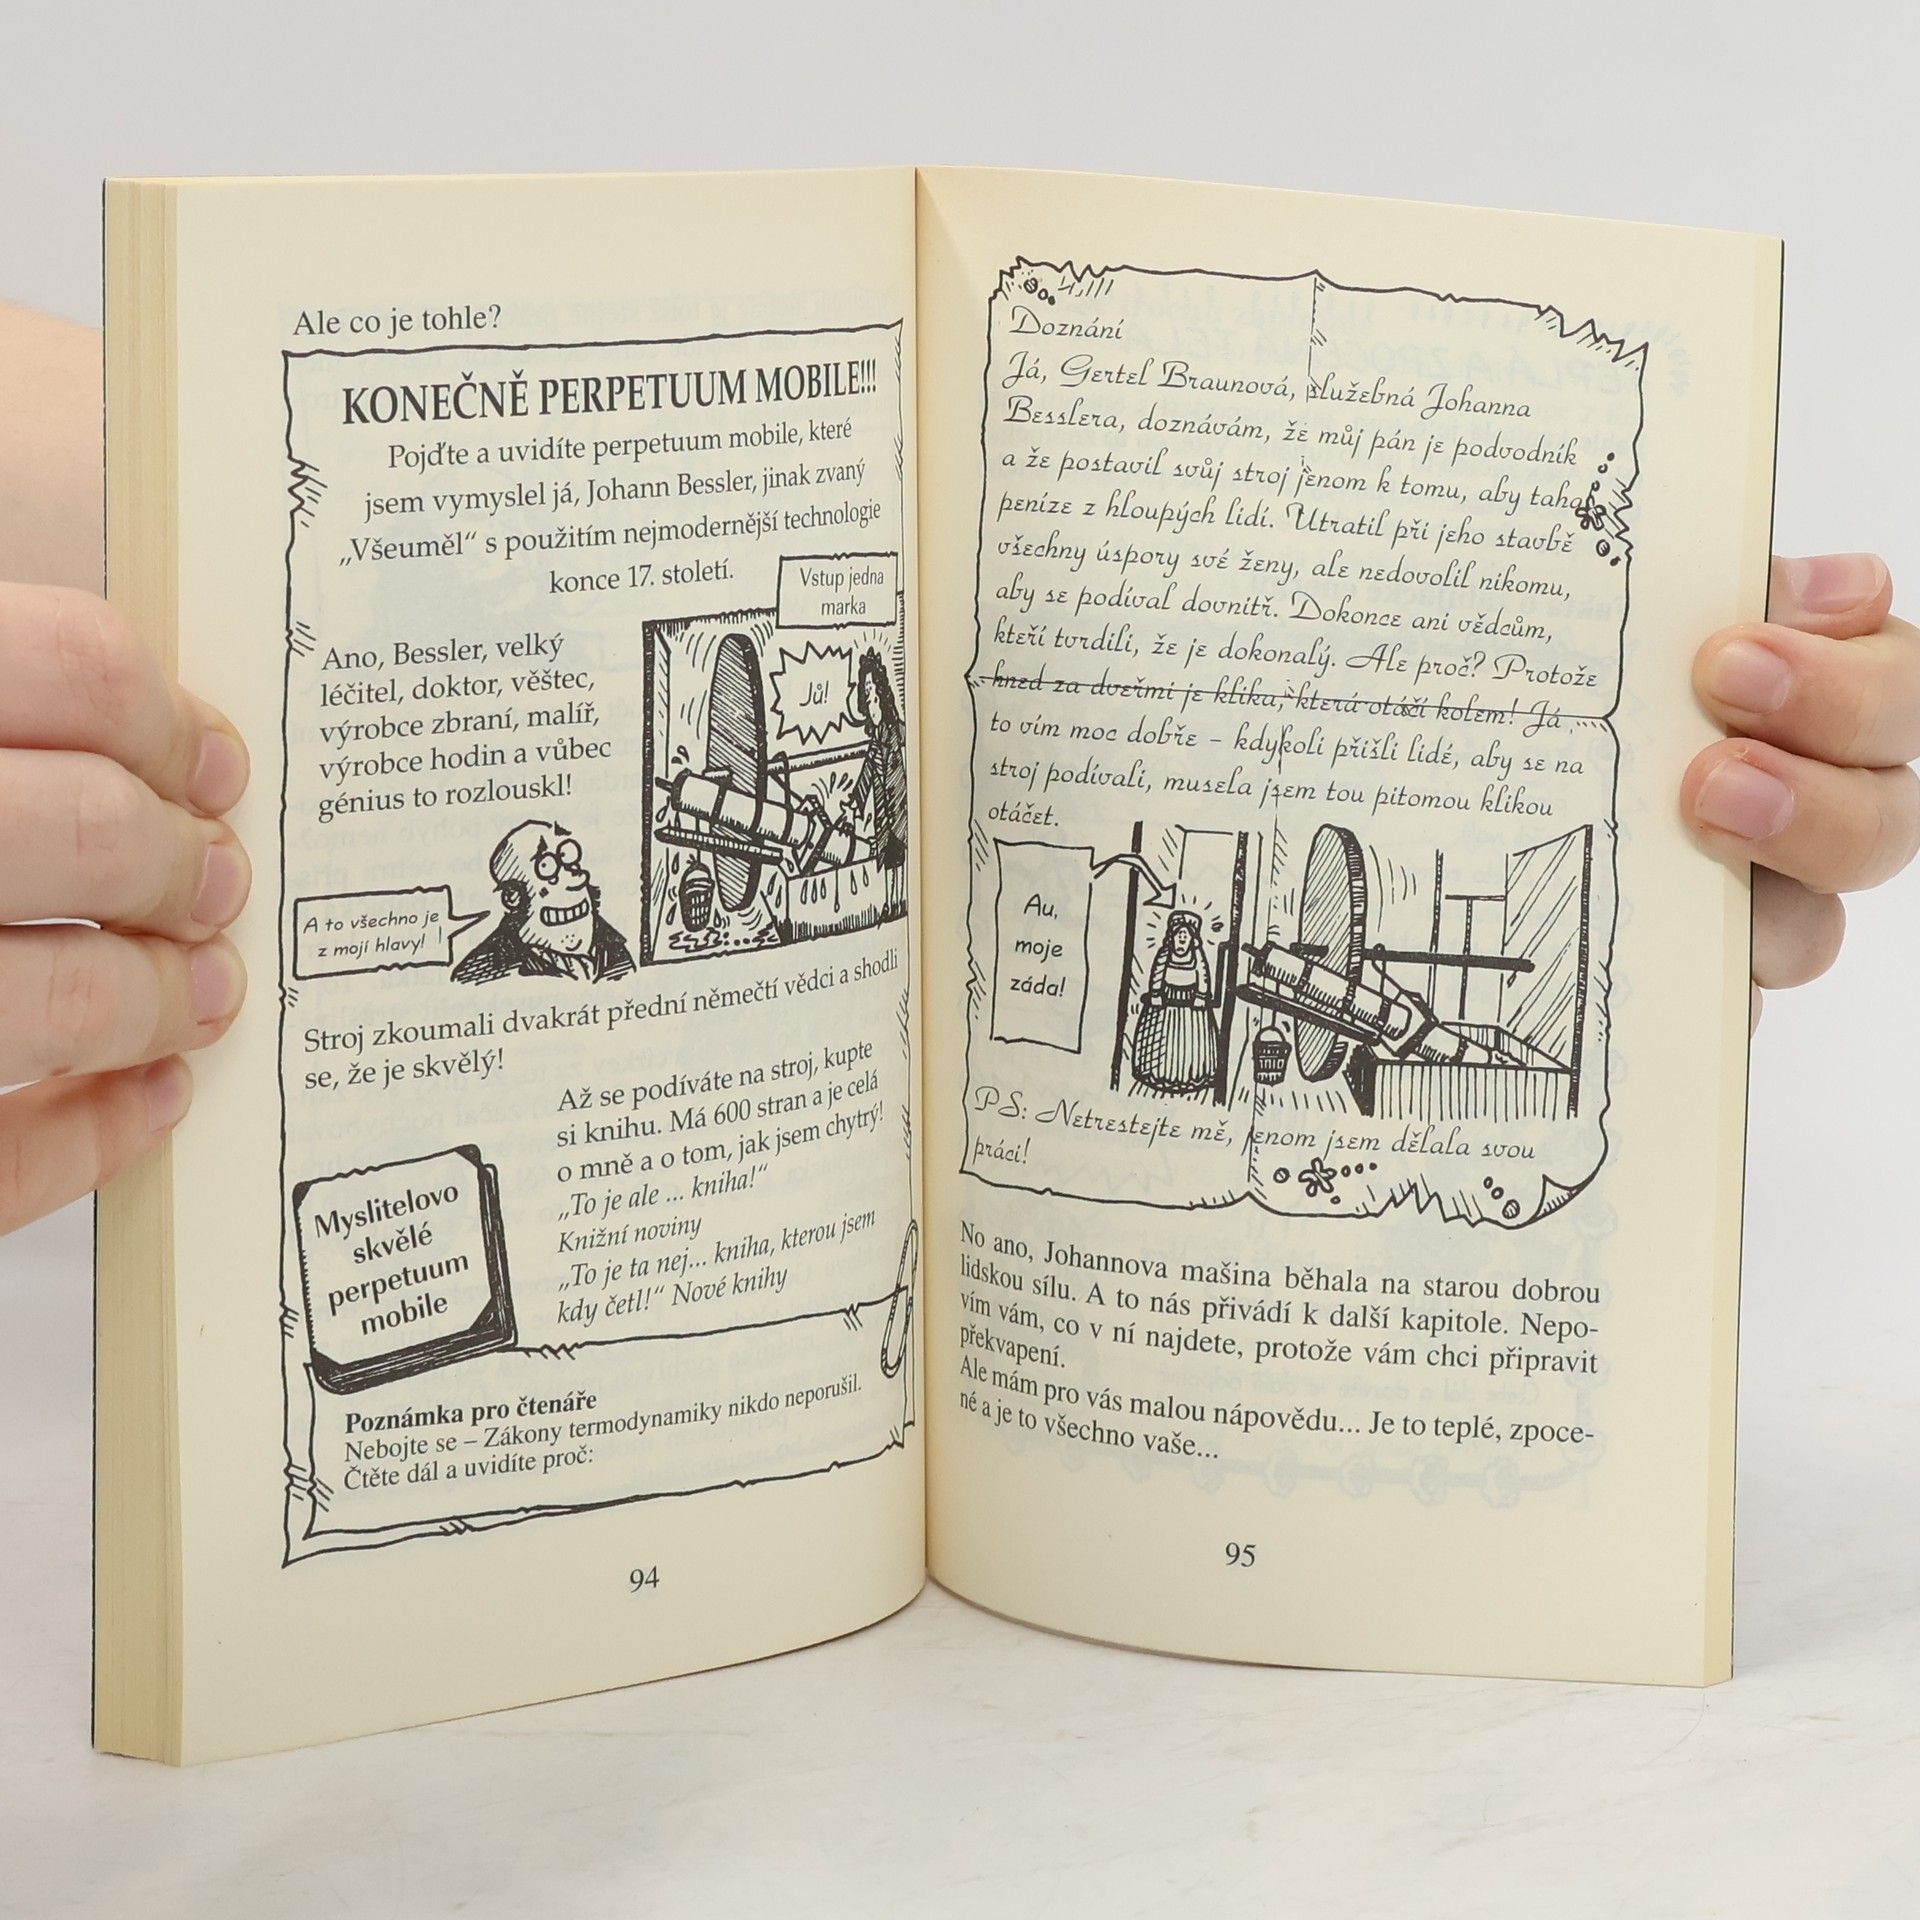 Ale co je tohle?
KONEČNĚ PERPETUUM MOBILE!!!
Pojďte a uvidíte perpetuum mobile, které
jsem vymyslel já, Johann Bessler, jinak zvaný
„Všeuměl“ s použitím nejmodernější technologie
konce 17. století.
Vstup jedna
marka
Ano, Bessler, velký
léčitel, doktor, věštec,
výrobce zbraní, malíř,
výrobce hodin a vůbec
génius to rozlouskl!
Jů!
A to všechno je
z mojí hlavy!
Stroj zkoumali dvakrát přední němečtí vědci a shodli
se, že je skvělý!
Až se podíváte na stroj, kupte
si knihu. Má 600 stran a je celá
o mně a o tom, jak jsem chytrý!
„To je ale ... kniha!“
Knižní noviny
„To je ta nej... kniha, kterou jsem
kdy četl!“ Nové knihy
Myslitelovo
skvělé
perpetuum
mobile
Poznámka pro čtenáře
Nebojte se – Zákony termodynamiky nikdo neporušil.
Čtěte dál a uvidíte proč:
94
Doznání
Já, Gertel Braunová, služebná Johanna
Besslera, doznávám, že můj pán je podvodník
a že postavil svůj stroj jenom k tomu, aby tahal
peníze z hloupých lidí. Utratil při jeho stavbě
všechny úspory své ženy, ale nedovolil nikomu,
aby se podíval dovnitř. Dokonce ani vědcům,
kteří tvrdili, že je dokonalý. Ale proč? Protože
hned za dveřmi je klika, která otáčí kolem! Já
to vím moc dobře – kdykoli přišli lidé, aby se na
stroj podívali, musela jsem tou pitomou klikou
otáčet.
Au,
moje
záda!
PS: Netrestejte mě, jenom jsem dělala svou
práci!
No ano, Johannova mašina běhala na starou dobrou
lidskou sílu. A to nás přivádí k další kapitole. Nepo-
vím vám, co v ní najdete, protože vám chci připravit
překvapení.
Ale mám pro vás malou nápovědu... Je to teplé, zpoce-
né a je to všechno vaše...
95